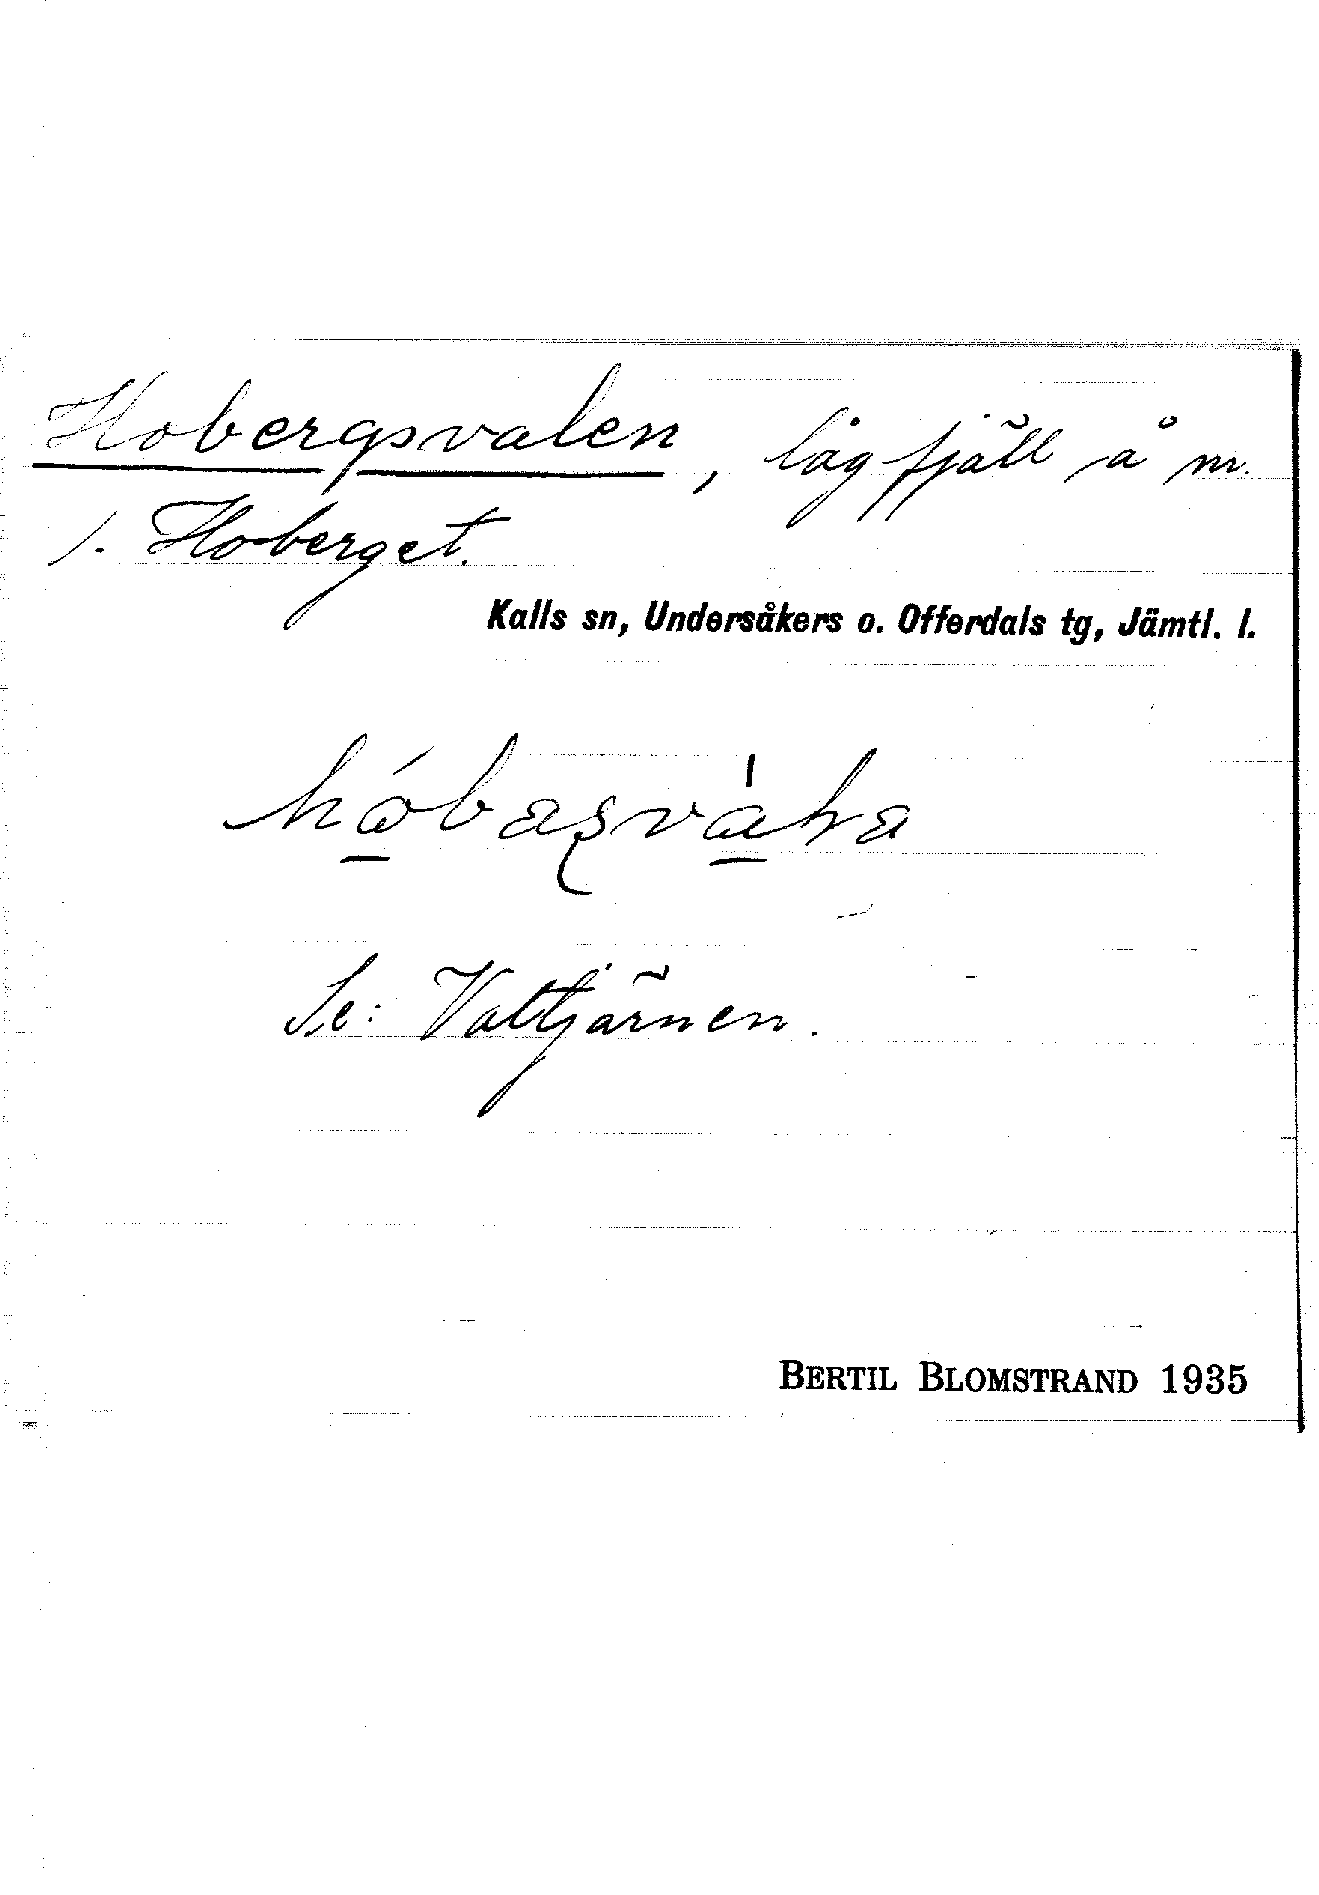 Hobergsvalen, lågfjäll å nr.
1. Hoberget.
Kalls sn, Undersåkers o. Offerdals tg, Jämtl. l.
Se: Valtjärnen.
BERTIL BLOMSTRAND 1935